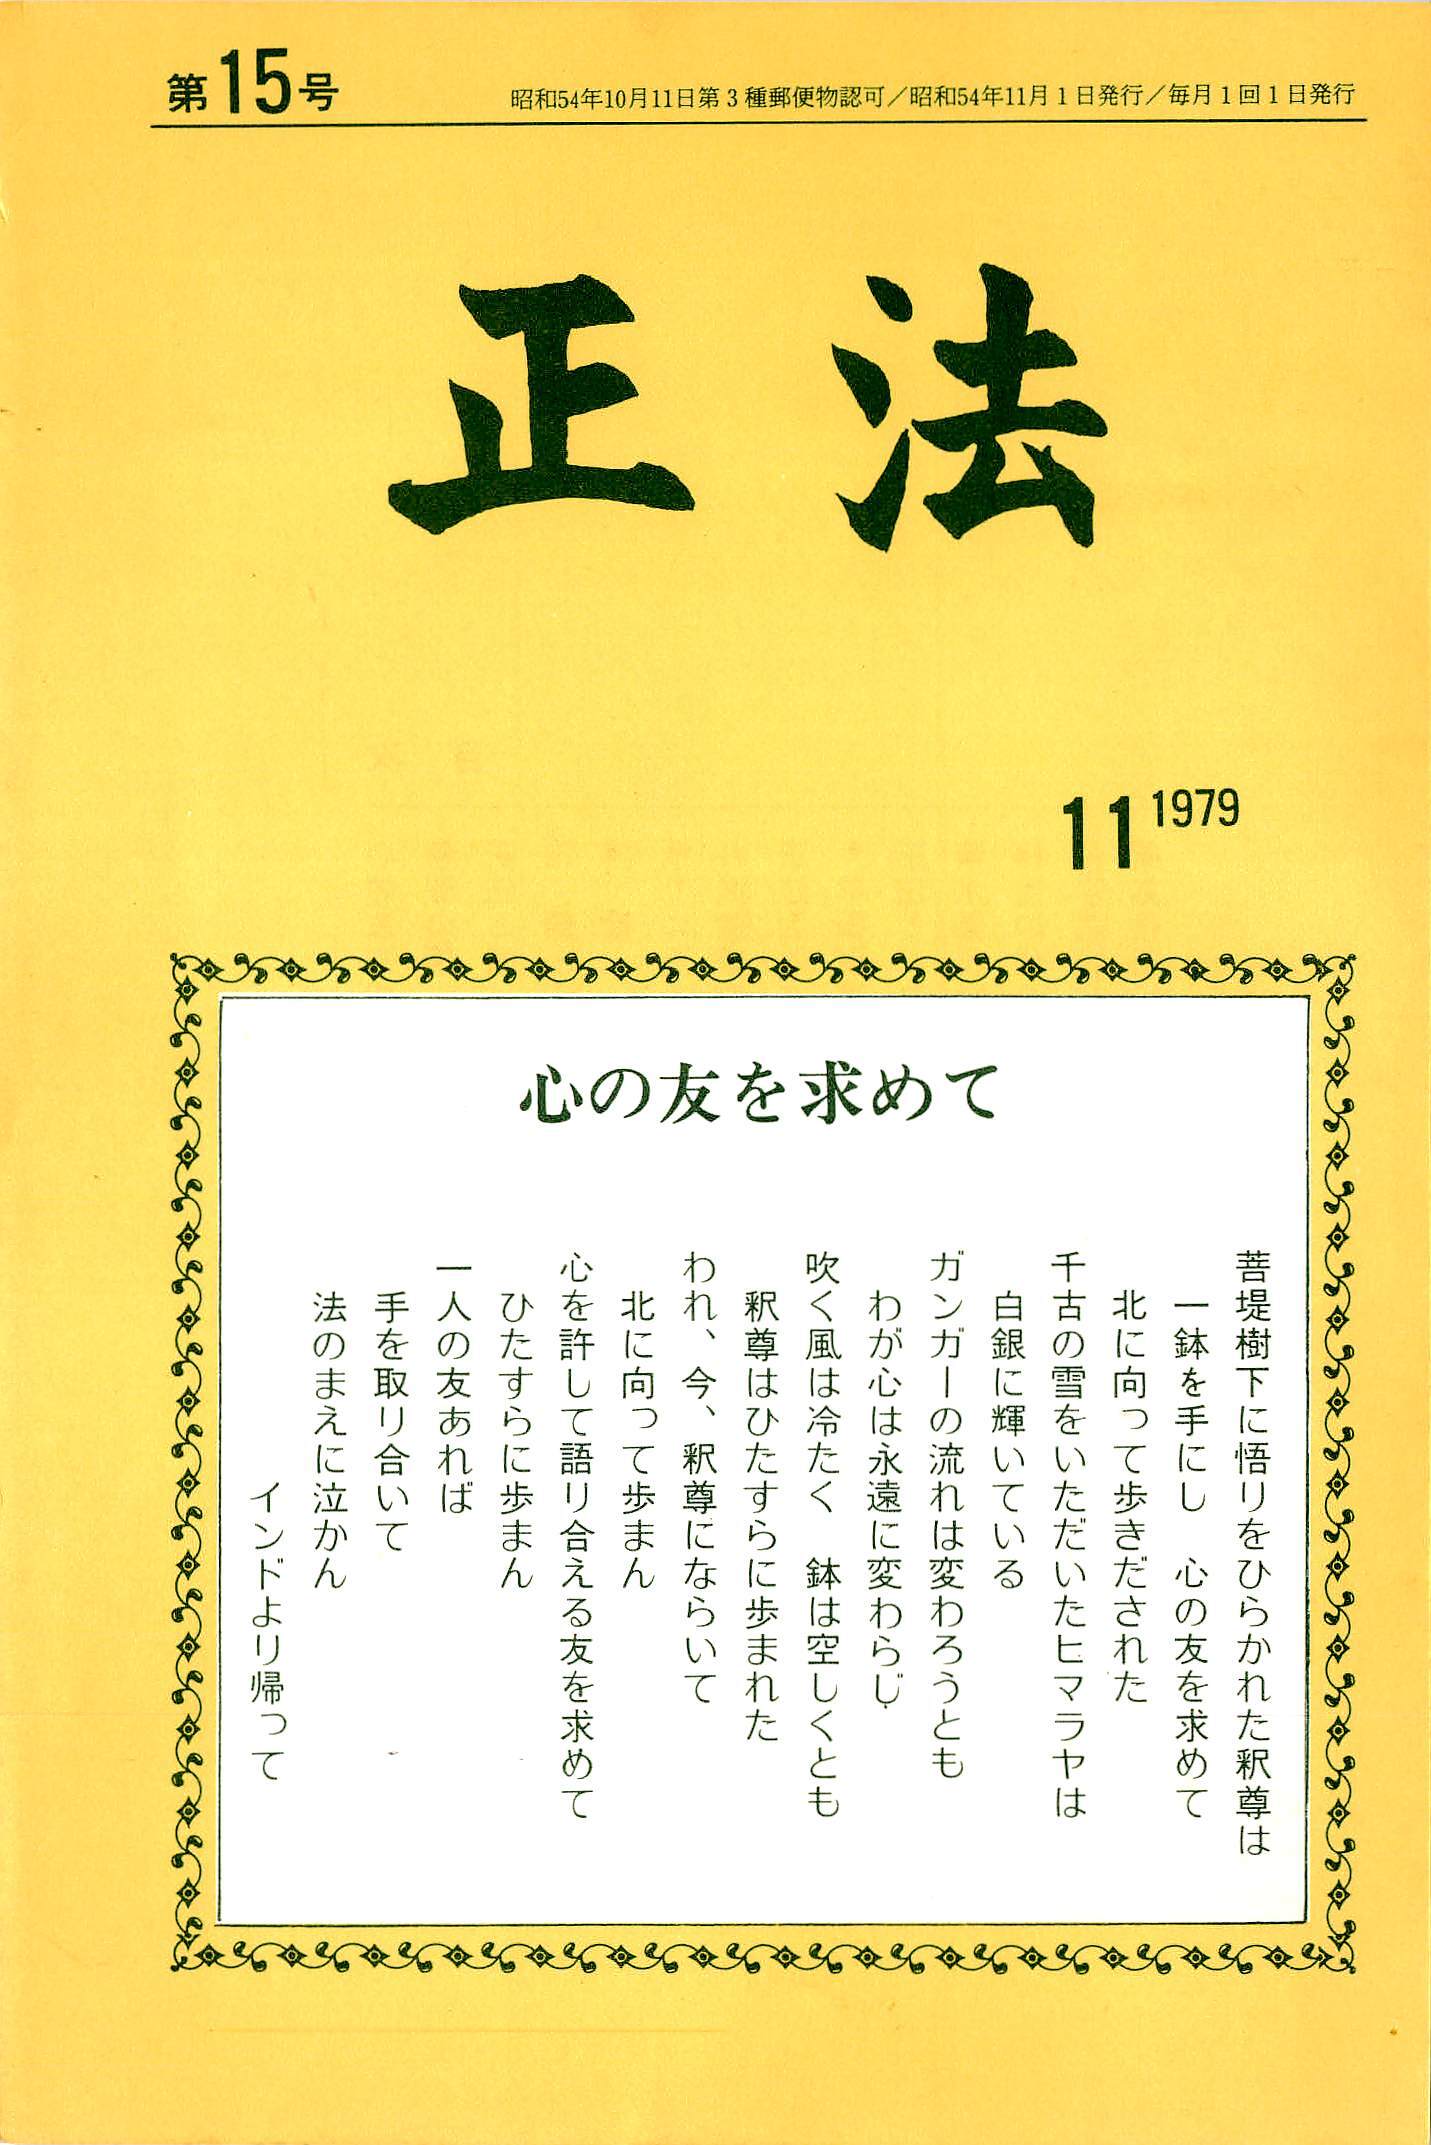 第15号
昭和54年10月11日第3種郵便物認可／昭和54年11月1日発行／毎月1回1日発行
正法
11 1979
心の友を求めて
菩堤樹下に悟りをひらかれた釈尊は
一鉢を手にし　心の友を求めて
北に向って歩きだされた
千古の雪をいただいたヒマラヤは
白銀に輝いている
ガンガーの流れは変わろうとも
わが心は永遠に変わらじ
吹く風は冷たく　鉢は空しくとも
釈尊はひたすらに歩まれた
われ、今、釈尊にならいて
北に向って歩まん
心を許して語り合える友を求めて
ひたすらに歩まん
一人の友あれば
手を取り合いて
法のまえに泣かん
インドより帰って